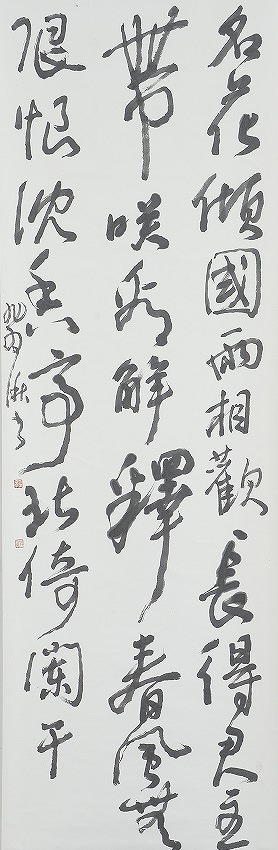 名花傾國兩相歡長得君王
帶咲看解釋春風無
限恨沈香亭北倚闌干